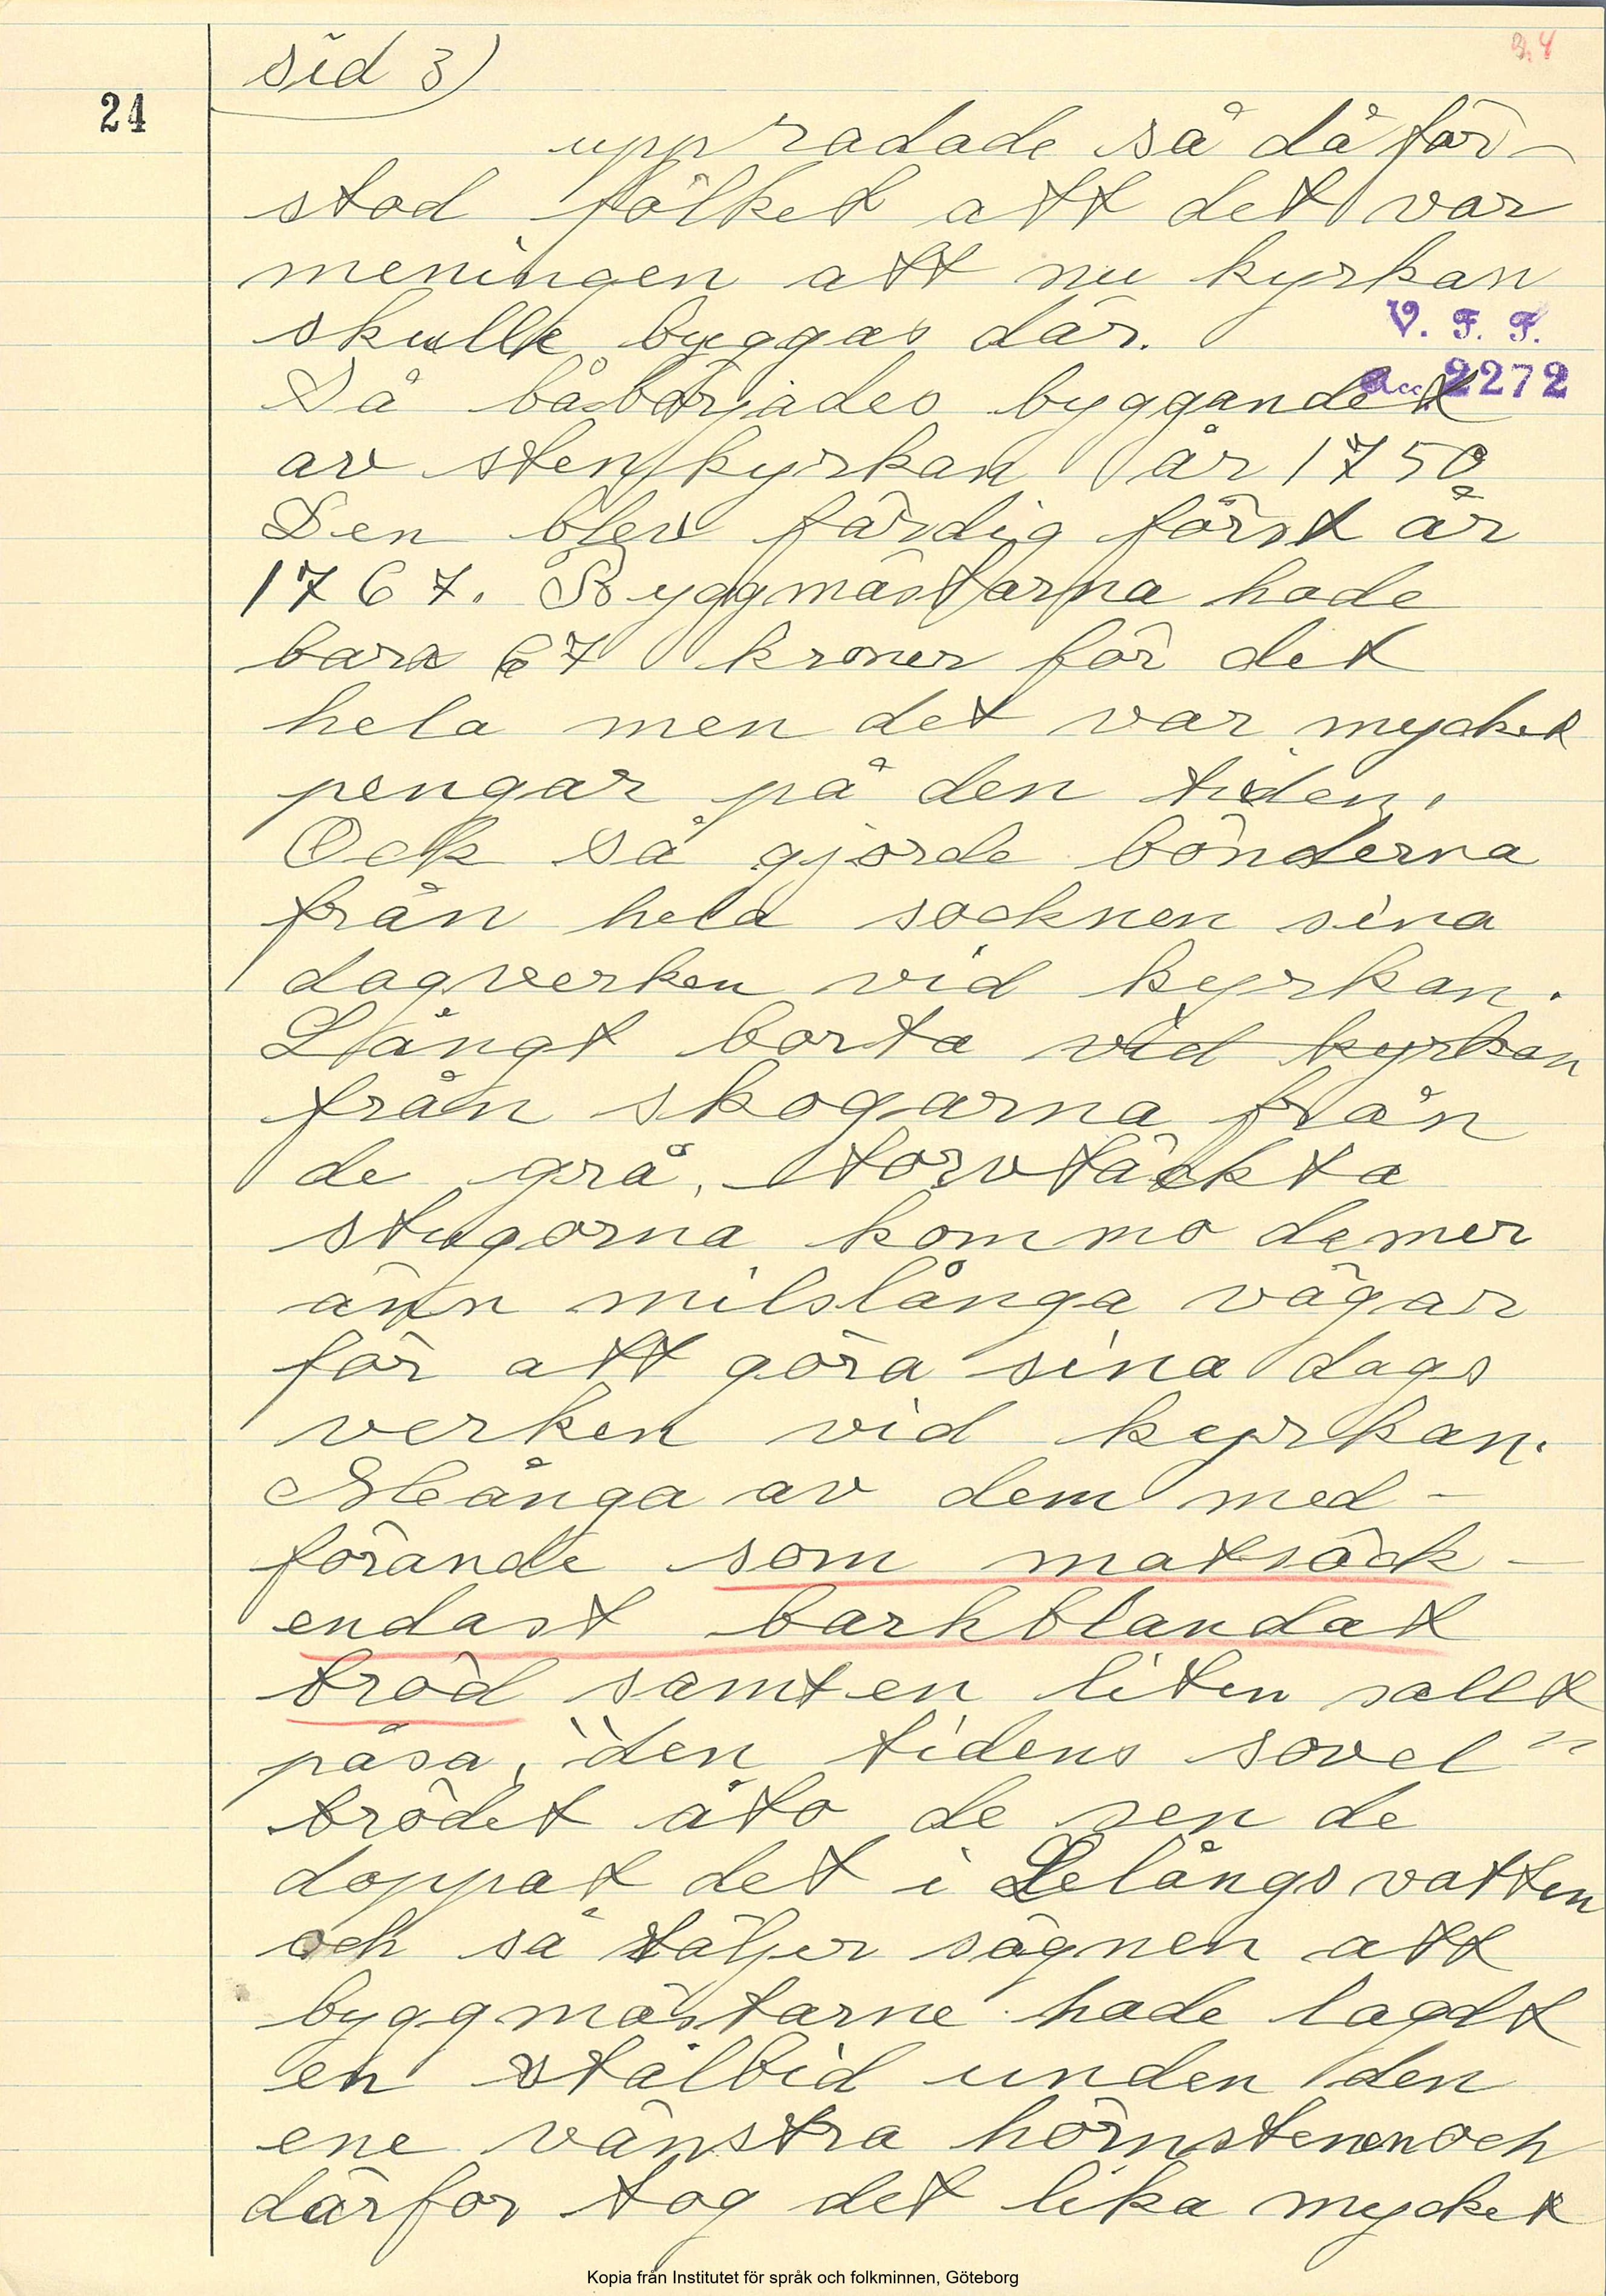 sid 3)
24
upp radade så då för-
stod fölket att det var
meningen att nu kyrkan
skulle byggas där.
V. F. F.
Så båbörjades byggandet
Acc. 2272
av stenkyrkan år 1750
Den blev färdig först år
1767. Byggmästarna hade
bara 67 kroner för det
hela men det var mycket
pengar på den tiden.
Ock så gjorde bönderna
från hela socknen sina
dagverken vid kyrkan.
Långt borta vid kyrkan
från skogarna från
de grå, torvtäckta
stugorna kommo de mer
änn milslånga vägar
för att göra sina dags
verken vid kyrkan.
Många av dem med-
förande som matsäck-
endast barkblandat
bröd samt en liten sallt
påsa, "den tidens sovel"
brödet åto de sen de
doppat det i Lelångs vatten
och så täljer sägnen att
byggmästarne hade lagdt
en stålbid unden den
ene vänstra hörnstenen och
därför tog det lika mycket
Kopia från Institutet för språk och folkminnen, Göteborg